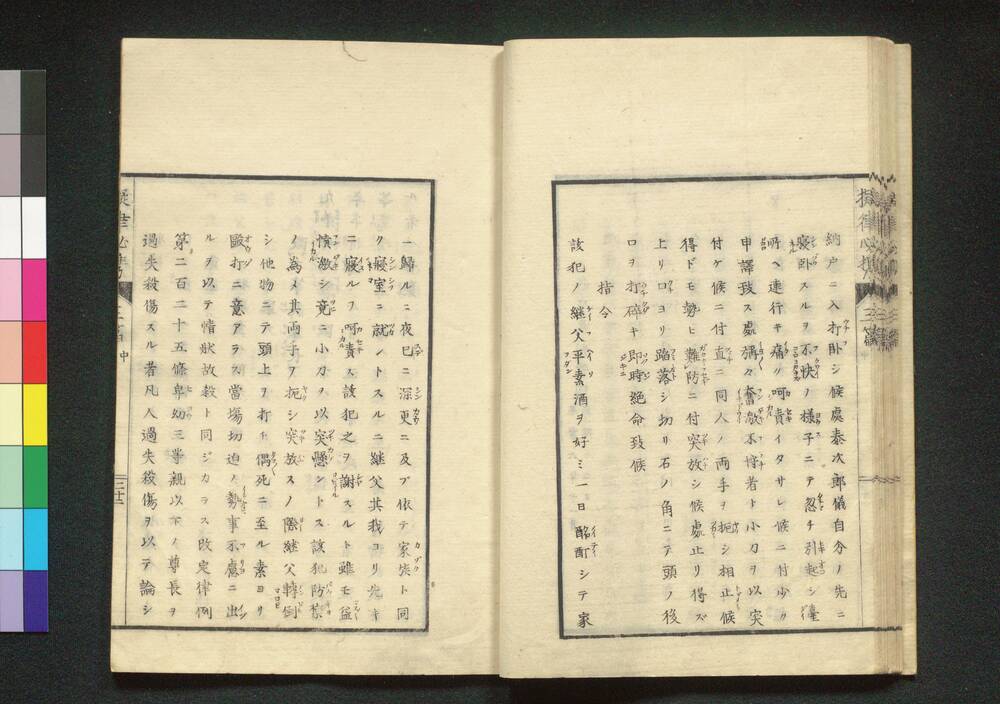 納戸ニ入打卧シ候處泰次郎儀自分ノ先ニ
寝卧スルヲ不快ノ様子ニテ忽チ引起シ臺
所ヘ連行キ痛ク呵責イタサレ候ニ付少々
申譯致ス處稱々奮激不埒者ト小刀ヲ以突
付ケ候ニ付直ニ同人ノ両手ヲ扼シ相止候
得ドモ勢ヒ難防ニ付突放シ候處止リ得ズ
上リ口ヨリ踏落シ切リ石ノ角ニテ頭ノ後
ロヲ打碎キ即時絶命致候
指令
該犯ノ継父平素酒ヲ好ミ一日酩酊シテ家
ニ歸ルニ夜已ニ深更ニ及ブ依テ家族ト同
ク寝室ニ就ントスルニ継父其我ヨリ先キ
ニ寝ルヲ呵責ス該犯之ヲ謝スルト雖モ益
憤激シ竟ニ小刀ヲ以突懸ントス該犯防禁
ノ為メ其両手ヲ扼シ突放スノ際継父轉倒
シ他物ニテ頭上ヲ打チ偶死ニ至ル素ヨリ
毆打ニ意アラス當場切迫ノ勢事不慮ニ出
ルヲ以テ情狀故殺ト同ジカラス改定律例
第二百二十五條卑幼三等親以下ノ尊長ヲ
過失殺傷スル者凡人過失殺傷ヲ以テ論シ